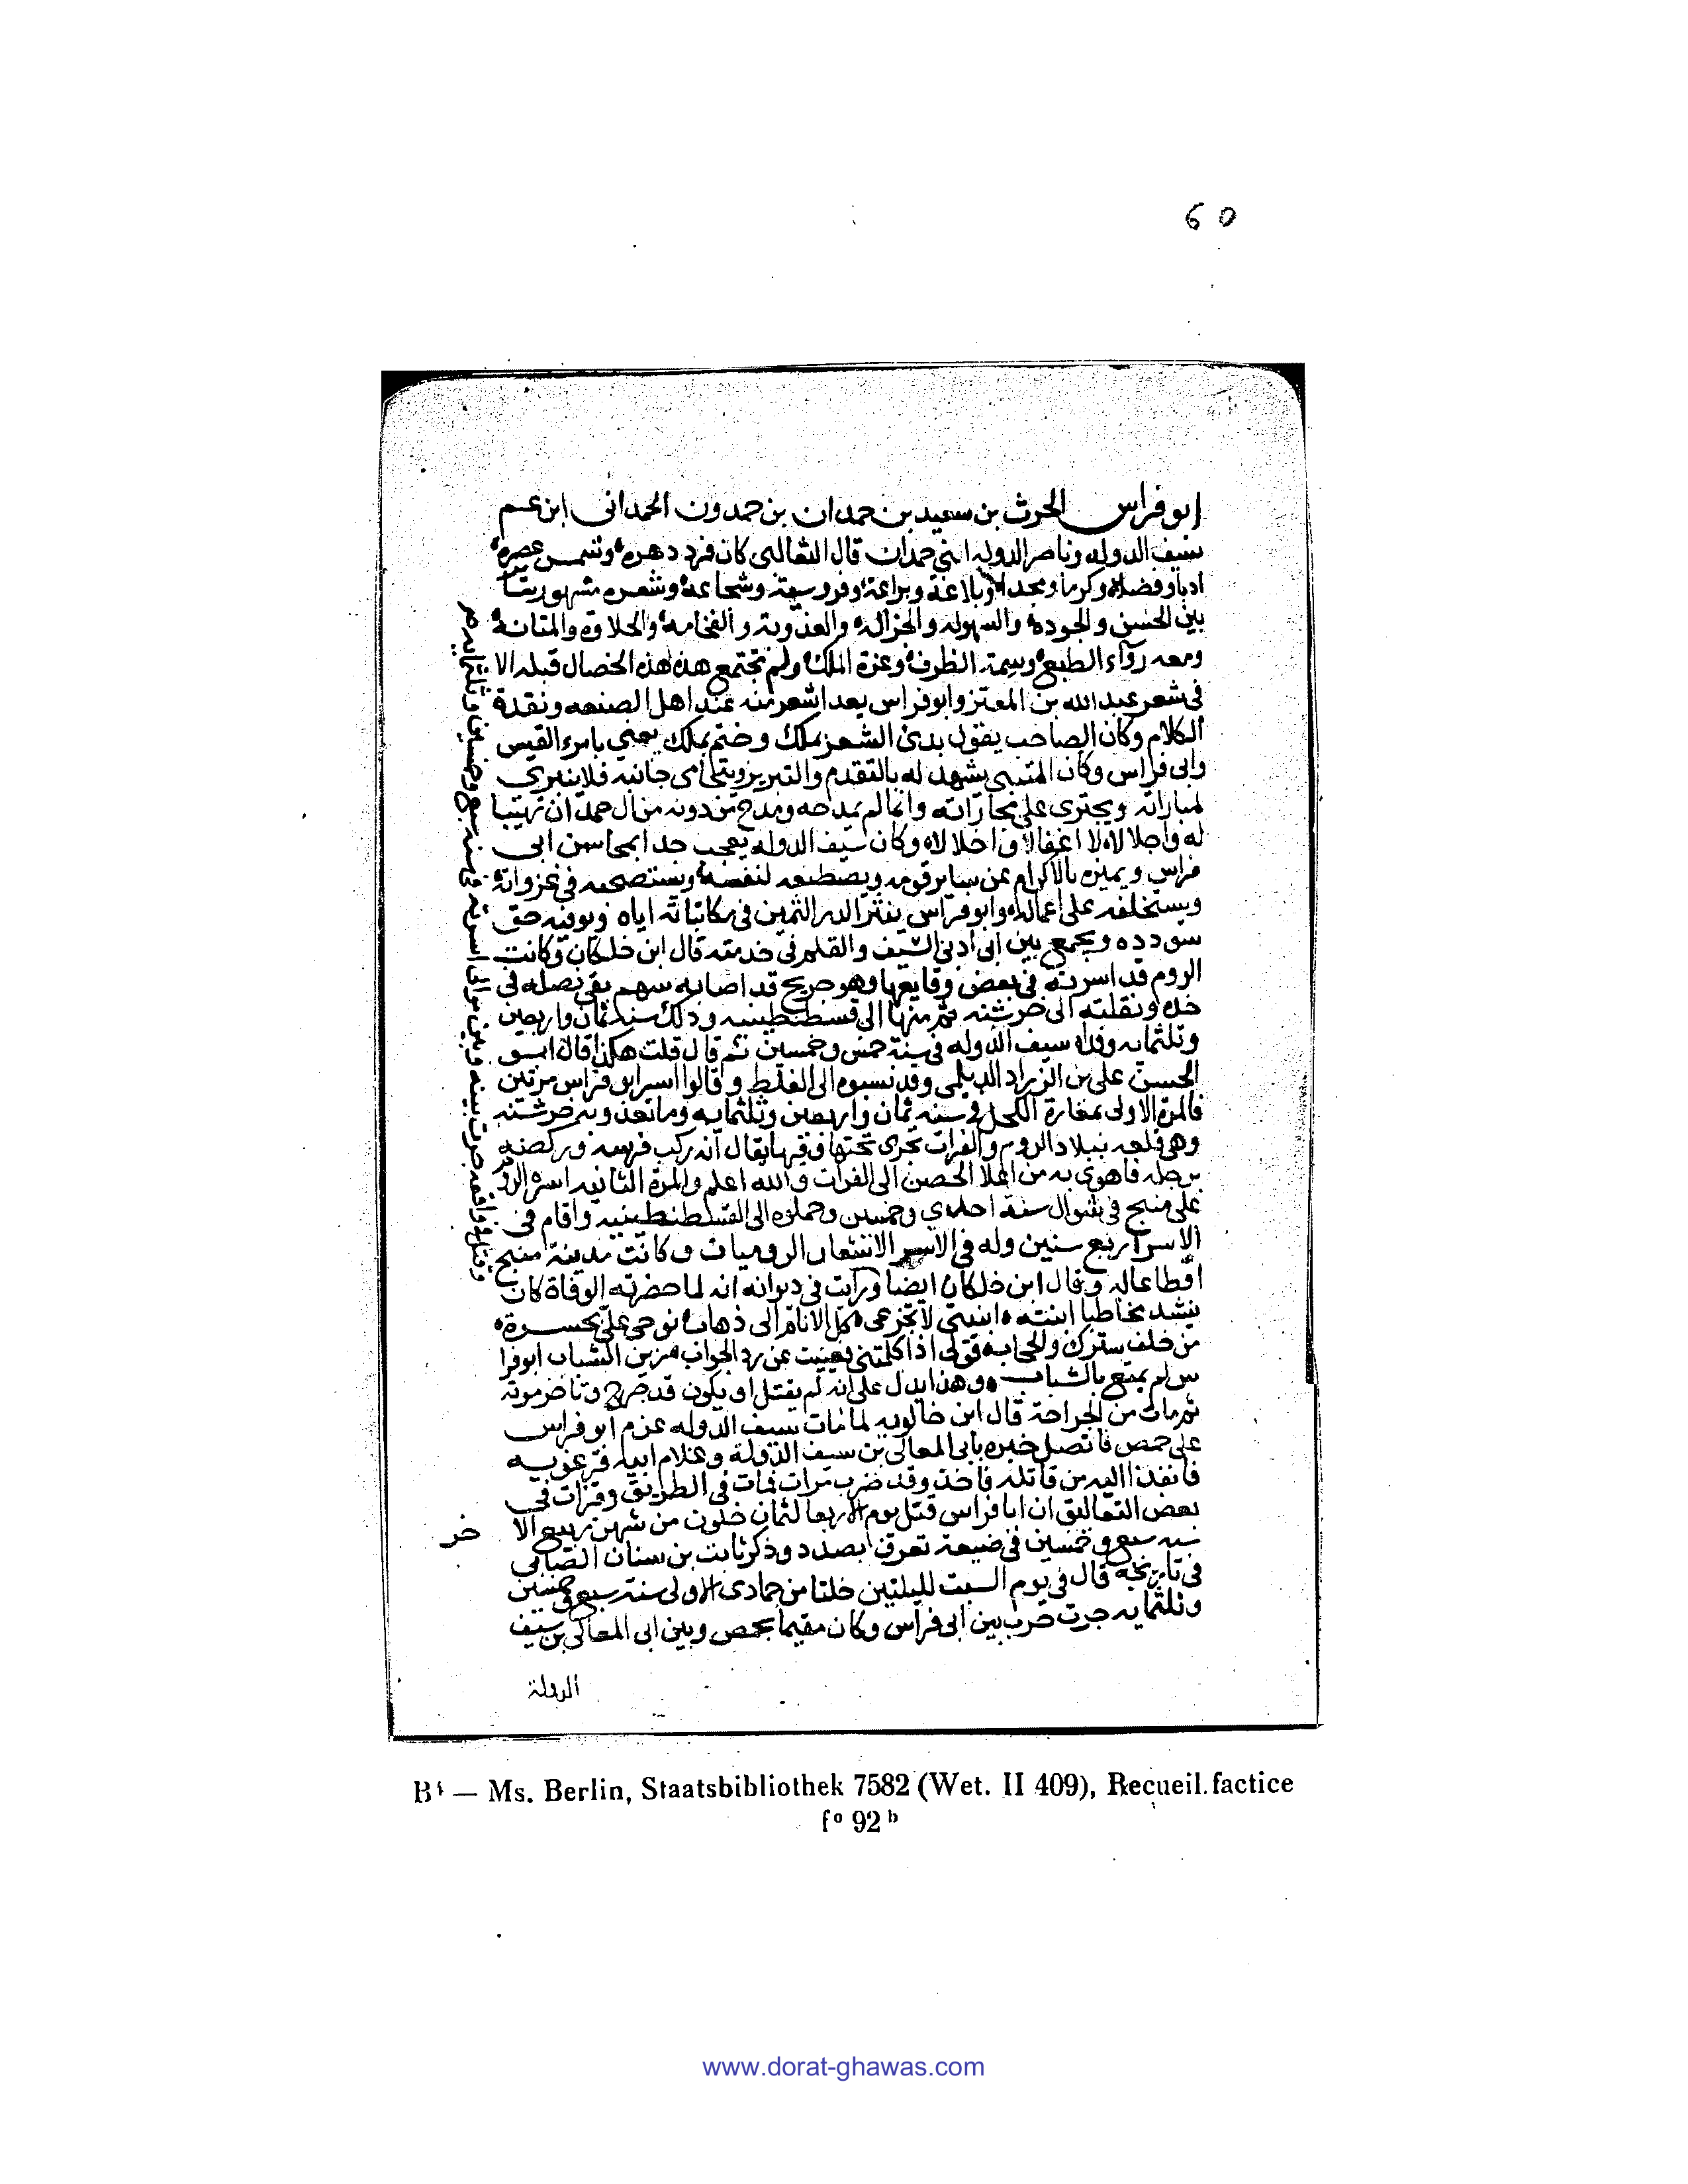 60
ابو فراس الحرث بن سعيد بن حمدان بن حمدون الحمداني ابن عم
سيف الدوله وناصر الدوله ابني حمدان قال الثعالبى كان فرد دهره وشمس عصره
ادبا وفضلا وكرما ومجدا وبلاغة وبراعة وفروسية وشجاعة وشعره مشهور
بين الحسن والجودة والسهوله والجزاله والعذوبة والفخامة والحلاوة والمتانة
ومعه رواء الطبع وسمة الظرف وعزة الملك ولم تجتمع هذه الخصال قبله الا
فى شعر عبد الله بن المعتز وابو فراس يعد اشعر منه عند اهل الصنعه ونقدة
الكلام وكان الصاحب يقول بدئ الشعر بملك وختم بملك يعني بامرء القيس
وابى فراس وكان المتنبى يشهد له بالتقدم والتبريز ويتحامى جانبه فلا ينبري
لمباراته ويجترى على مجاراته وانما لم يمدحه ومدح من دونه من ال حمدان تهيبا
له واجلالا لا اغفالا واخلالا وكان سيف الدوله يعجب جدا بمحاسن ابى
فراس ويميزه بالاكرام عن ساير قومه ويصطنعه لنفسه ويستصحبه فى غزواته
ويستخلفه على اعماله وابو فراس ينثر الدر الثمين فى مكاتباته اياه ويوفيه حق
سودده ويجمع بين ادبى السيف والقلم فى خدمته قال ابن خلكان وكانت
الروم قد اسرته فى بعض وقايعها وهو جريح قد اصابه سهم بقى نصله فى
ونقلته الى خرشنه ثم منها الى قسطنطينيه وذلك سنه ثمان واربعين
وثلثمايه وفداه سيف الدوله فى سنة خمس وخمسين ثم قال قلت هكذا قال ابو
الحسن على بن الزراد الديلمى وقد نسبوه الى الغلط وقالوا اسر ابو فراس مرتين
فالمرة الاولى بمغارة الكحل فى سنه ثمان واربعين وثلثمايه وما تعدو به خرشنه
وهى قلعه ببلاد الروم والفرات تجرى تحتها وفيها يقال انه ركب فرسه وركضه
برجله فاهوى به من اعلا الحصن الى الفرات والله اعلم والمرة الثانيه اسره الروم
على منبج فى شوال سنة احدى وخمسين وحملوه الى القسطنطينيه واقام فى
الاسر اربع سنين وله فى الاسر الاشعار الروميات وكانت مدينة منبج
اقطاعا له وقال ابن خلكان ايضا ورايت فى ديوانه انه لما حضرته الوفاة كان
ينشد مخاطبا ابنته ابنيتى لا تجزعى كل الانام الى ذهاب نوحى على بحسرة
من خلف سترك والحجاب قولى اذا كلمتنى فعييت عن رد الجواب زين الشباب ابو فرا
س لم يمتع بالشباب وهذا يدل على انه لم يقتل او يكون قد جرح وتاخر موته
ثم مات من الجراحة قال ابن خالويه لما مات سيف الدوله عزم ابو فراس
على حمص فاتصل خبره بابى المعالى بن سيف الدولة وغلام ابيه قرغويه
فانفذ اليه من قاتله فاخذ وقد ضرب ضربات فمات فى الطريق وقرات فى
بعض التعاليق ان ابا فراس قتل يوم الاربعا لثمان خلون من شهر ربيع الا
خر
سنه سبع وخمسين فى ضيعة تعرف بصدد وذكر ثابت بن سنان الصابى
فى تاريخه قال فى يوم السبت لليلتين خلتا من جمادى الاولى سنة سبع وخمسين
وثلثمايه جرت حرب بين ابى فراس وكان مقيما بحمص وبين ابى المعالى بن سيف
الدولة
B⁴ — Ms. Berlin, Staatsbibliothek 7582 (Wet. II 409), Recueil factice
fº 92 b
www.dorat-ghawas.com